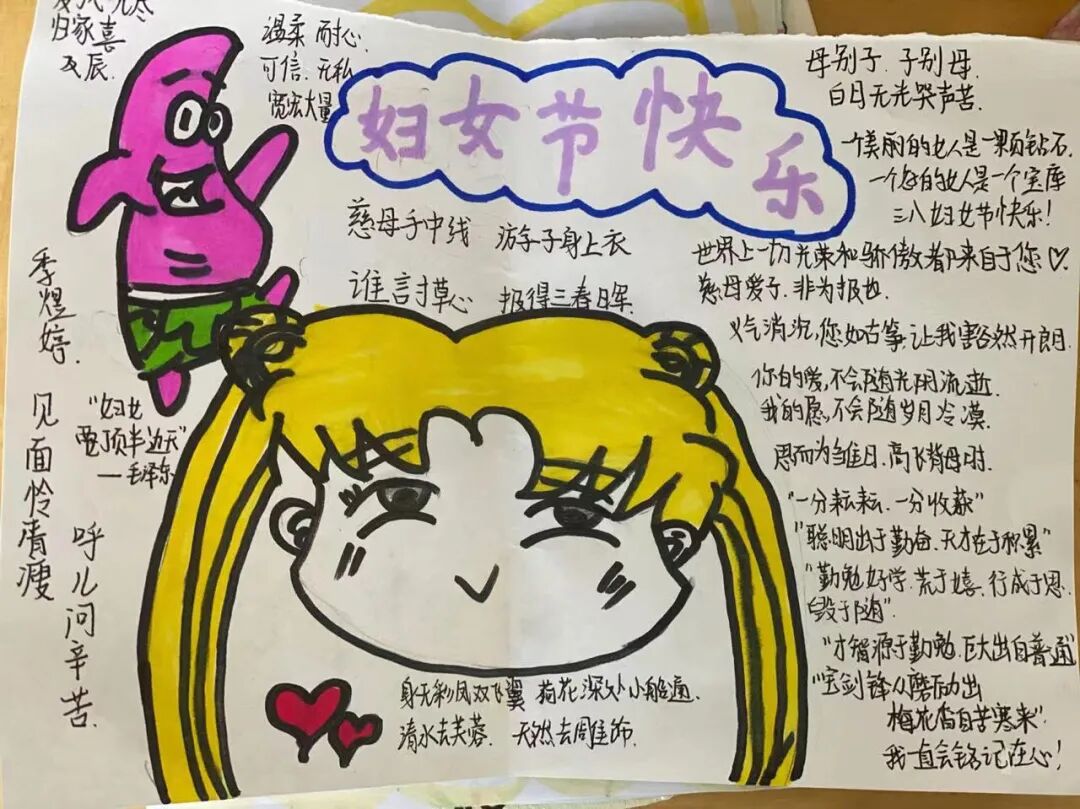 归家喜
及辰.
温柔 耐心.
可信.无私
宽宏大量
妇女节快乐
慈母手中线 游子身上衣
谁言寸草心 报得三春晖
母别子.子别母.
白日无光哭声苦.
一个美丽的女人是一颗钻石.
一个好的女人是一个宝库
三八妇女节快乐!
世界上一切光荣和骄傲都来自于您♡.
慈母爱子.非为报也.
义气消沉,您如古筝,让我豁然开朗.
你的爱,不会随光阴流逝
我的恩,不会随岁月冷漠.
思而为雏日,高飞背母时.
"一分耘耘.一分收获"
"聪明出于勤奋.天才在于积累"
"勤勉好学.荒于嬉.行成于思.
毁于随"
"才智源于勤勉.巨大出自普通"
"宝剑锋从磨励出
梅花香自苦寒来"
我一直会铭记在心!
季煜婷.
"妇女
能顶半边天"
—毛泽东
见面怜清瘦
呼儿问辛苦.
身无彩凤双飞翼 荷花深处小船通.
清水去芙蓉. 天然去雕饰.